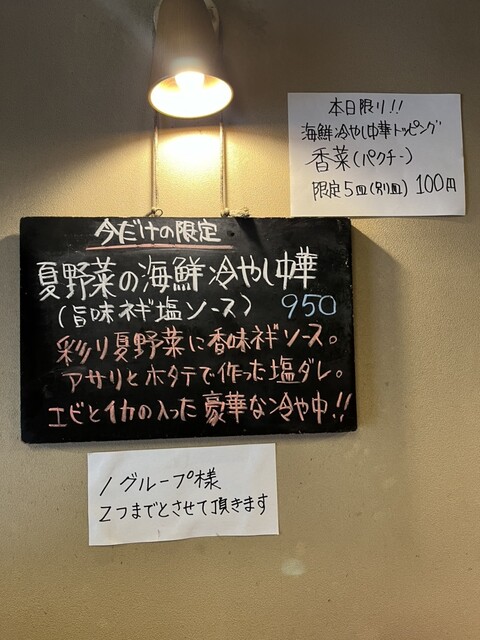 本日限り!!
海鮮冷やし中華トッピング
香菜(パクチー)
限定5皿(別り皿) 100円
今だけの限定
夏野菜の海鮮冷やし中華
(旨味ネギ塩ソース) 950
彩り夏野菜に香味ネギソース。
アサリとホタテで作った塩ダレ。
エビとイカの入った豪華な冷や中!!
1グループ様
2つまでとさせて頂きます